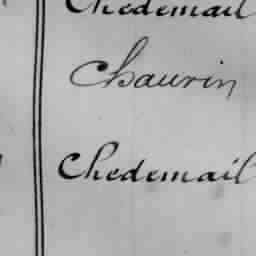 Chedemail
Chaurin
Chedemail